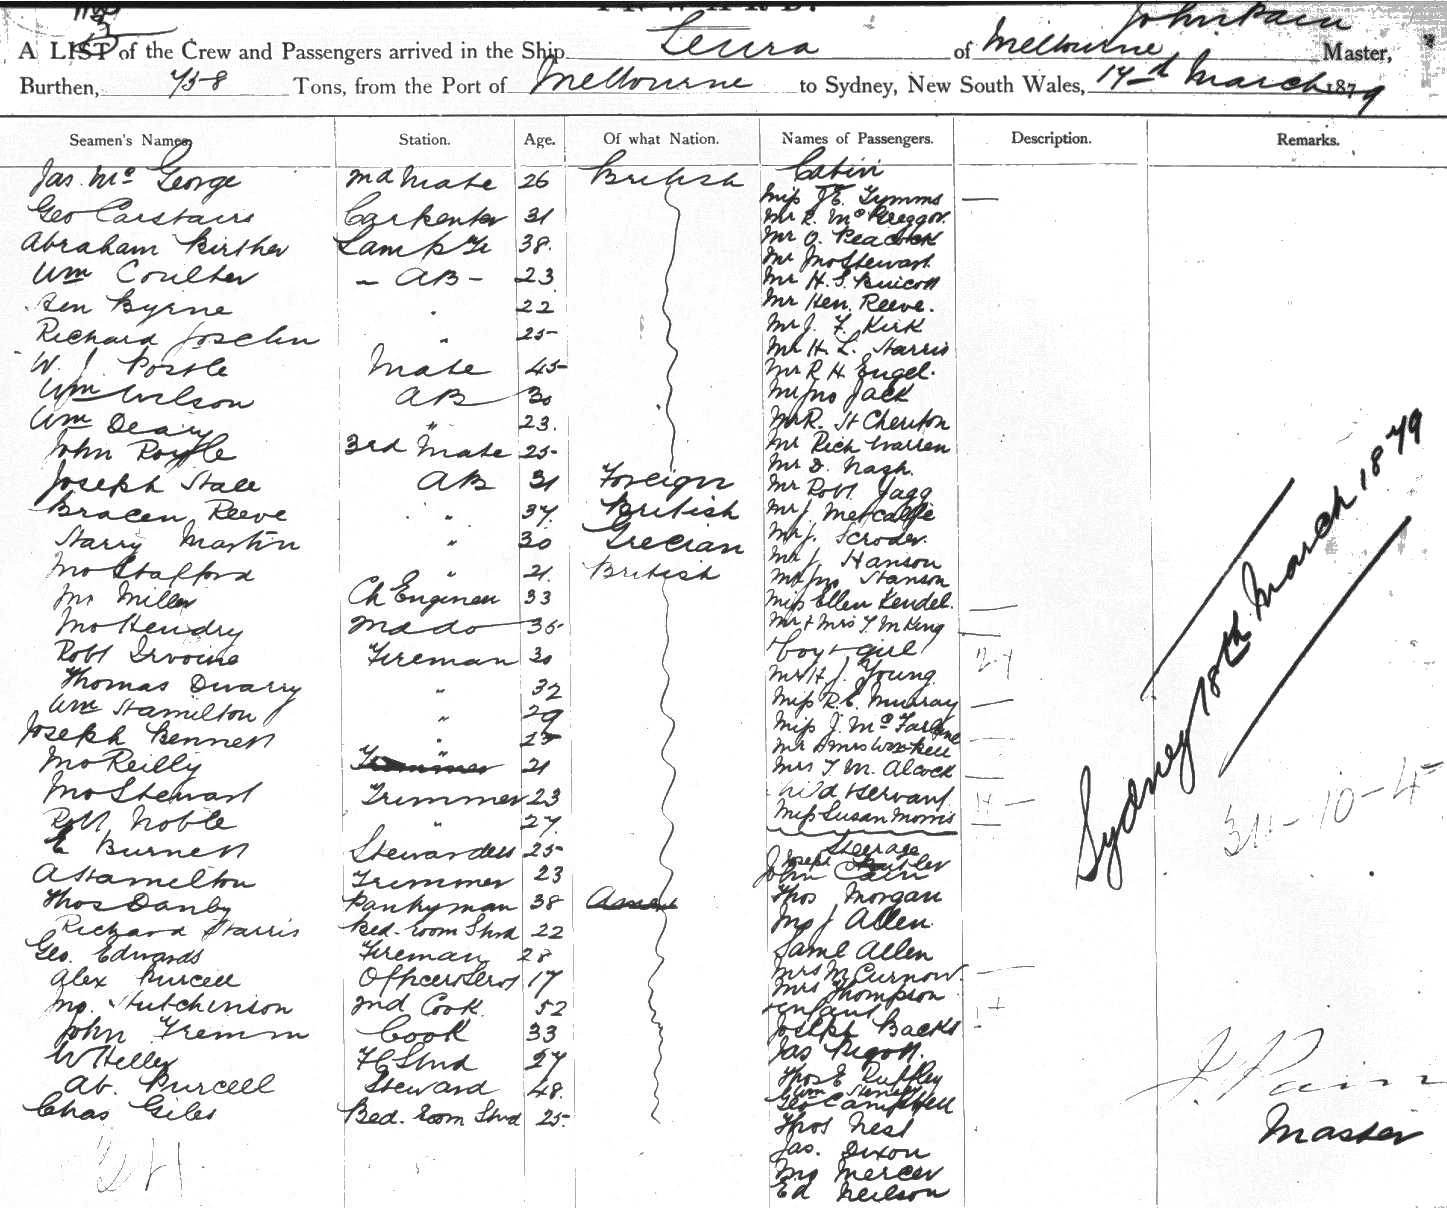 INWARD.
John Pain
A LIST of the Crew and Passengers arrived in the Ship Leura of Melbourne Master,
Burthen, 758 Tons, from the Port of Melbourne to Sydney, New South Wales, 17th March 1879
Seamen's Names. Station. Age. Of what Nation. Names of Passengers. Description. Remarks.
Jas. Mc George 2nd Mate 26 British
Geo Carstairs Carpenter 31
Abraham Birther Lamp Tr 38.
Wm Coulter - AB - 23
Byrne " 22
Richard Joselin " 25
W. J. Postle Mate 45
Wm Wilson AB 30
Wm Deary " 23.
John Royle 3rd Mate 25
Joseph Stace AB 31 Foreign
Bracen Reeve " 37 British
Harry Martin " 30 Grecian
Jno Stafford " 21 British
Jno Miller Ch Engineer 33
Jno Hendry 2nd do 35
Robt Irvoine Fireman 30
Thomas Dwarry " 32
Wm Hamilton " 29
Joseph Bennett " 25
Jno Reilly 21
Jno Stewart Trimmer 23
Robt Noble " 27
E Burnett Stewardess 25
A Hamelton Trimmer 23
Thos Danby Pantryman 38
Richard Harris Bed-room Stwd 22
Geo. Edwards Fireman 28
Alex Purcell Officers 17
Hutchinson 2nd Cook 52
John Fremm Cook 33
W Helley FC Stwd 27
Ab. Purcell Steward 48
Chas Giles Bed-room Stwd 25
Cabin
Miss Tymms
Mr R. McGreggor
Mr O. Peacock
Mr Jno Stewart
Mr H. S.
Mr Hen. Reeve.
Mr J. F. Kirk
Mr H. L. Harris
Mr R H Engel.
Mr Jno Jack
Mr R. St Cheriton
Mr Rich Warren
Mr D. Nash.
Mr Robt Jagg
Mr J Metcalfe
Mr J. Scroder.
Mr J. Hanson
Mr Jno Hanson
Miss Ellen Kendel.
Mr & Mrs T. M King
boy & girl
Mr H. J. Young
Miss R. E. Murray
Miss J. McFarlane
Mr & Mrs
Mrs T. M. Alcock
child & servant
Miss Susan Morris
Steerage
Joseph Butler
John Cain
Thos Morgan
J Allen
Saml Allen
Mrs M Curnow
Mrs Thompson
& infant
Joseph Backs
Jas Pigott.
Thos E Ruffley
Wm
Geo Campbell
Thos Nest
Jas. Dixon
Mercer
Ed Neilson
Sydney 18th March 1879
31-10-4
J. Pain
Master